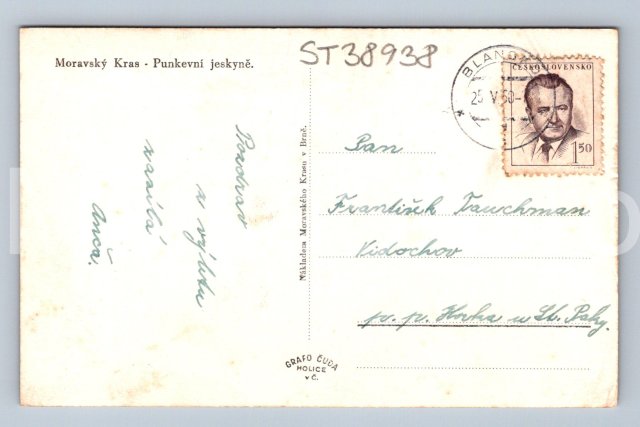 Moravský Kras - Punkevní jeskyně.
ST38938
BLANSKO
25 V 50
ČESKOSLOVENSKO
1 50
Pozdrav
z výletu
zasílá
Anča.
Nákladem Moravského Krasu v Brně.
Pan
František Tauchman
Vidochov
p. p. Horka u St. Paky.
GRAFO ČUDA
HOLICE
v Č.